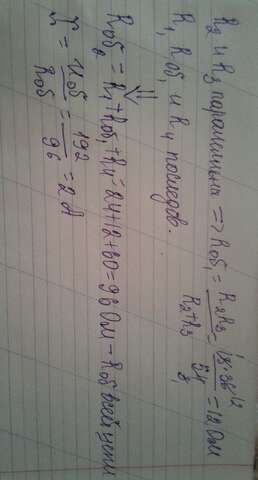 R2 и R3 параллельны => Rоб1 = R2R3 / R2+R3 = 18·36 / 54 = 12 Ом
R1, Rоб1 и R4 последов.
⇓
Rоб2 = R1 + Rоб1 + R4 = 24+12+60 = 96 Ом – Rоб всей цепи
I = Uоб / Rоб = 192 / 96 = 2 А